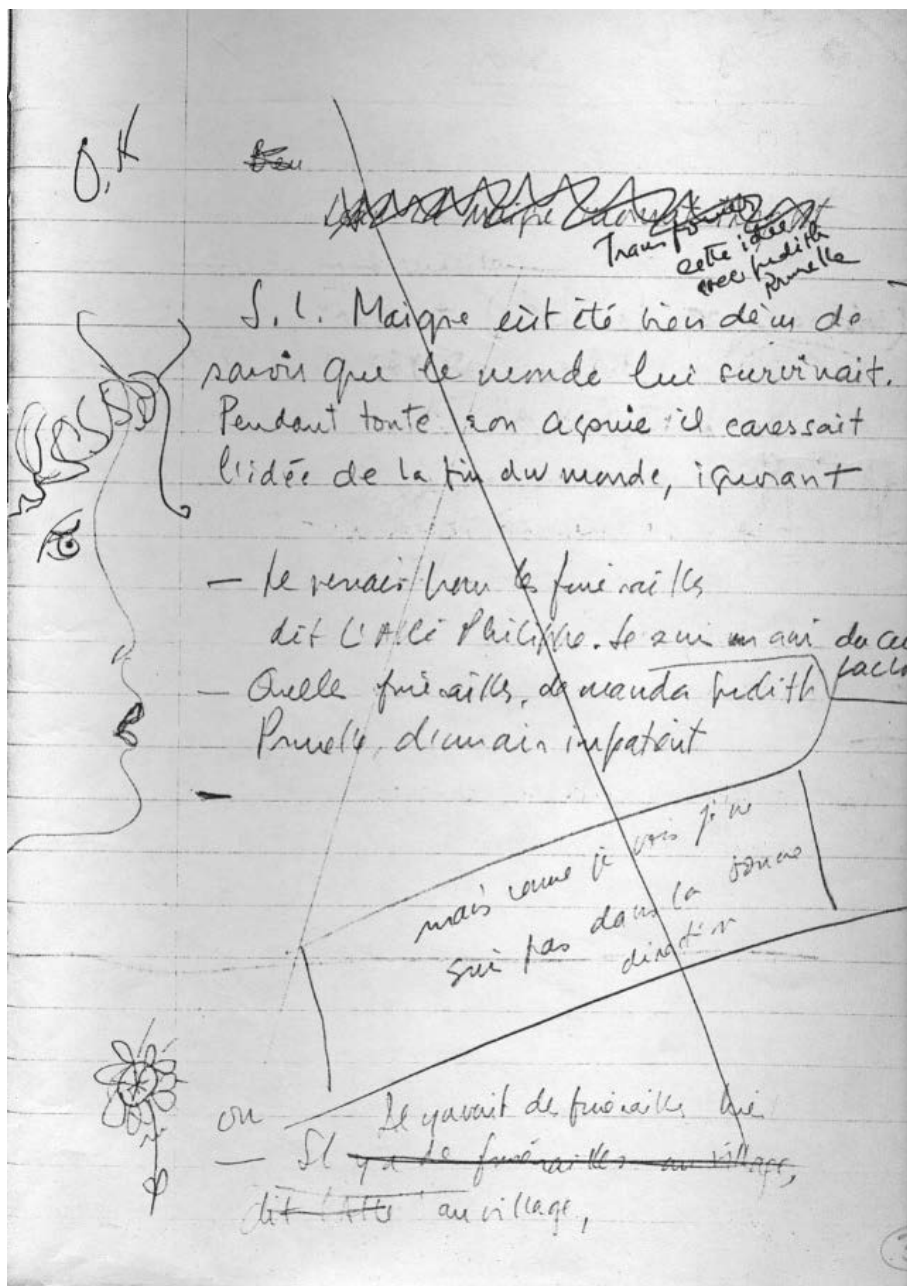 O.K
Transformer
cette idée
avec Judith
Prunelle
S. L. Maigre eût été bien déçu de
savoir que le monde lui survivait.
Pendant toute son agonie il caressait
l'idée de la fin du monde, ignorant
— Je venais pour les funérailles
dit L'Abbé Philippe. Je suis un ami du
— Quelle funérailles, demanda Judith
Prunelle, d'un air impatient
—
mais comme je vois je ne
suis pas dans la bonne
direction
ou Il y avait des funérailles
— Il y a des funérailles au village,
dit l'Abbé au village,